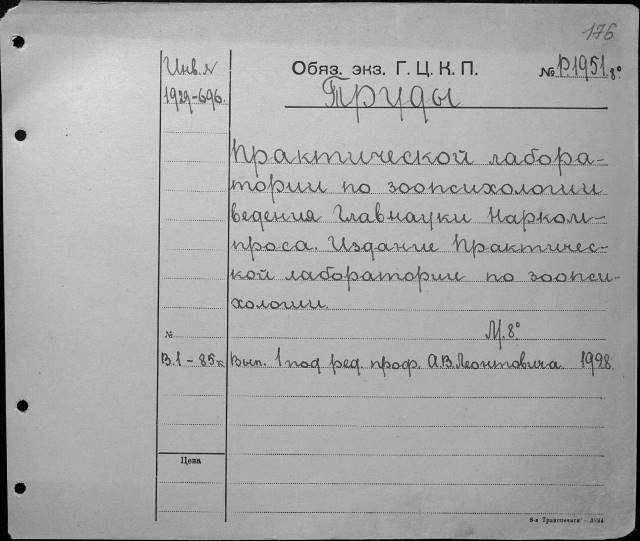 176
Инв. N
Обяз. экз. Г. Ц. К. П.
№ P.1951 8°
1929-696.
Труды
Практической лабора-
тории по зоопсихологии
ведения Главнауки Нарком-
проса. Издание Практичес-
кой лаборатории по зоопси-
хологии.
№
М. 8°
В.1 - 85к
Вып. 1 под ред. проф. А.В.Леонтовича. 1928
Цена